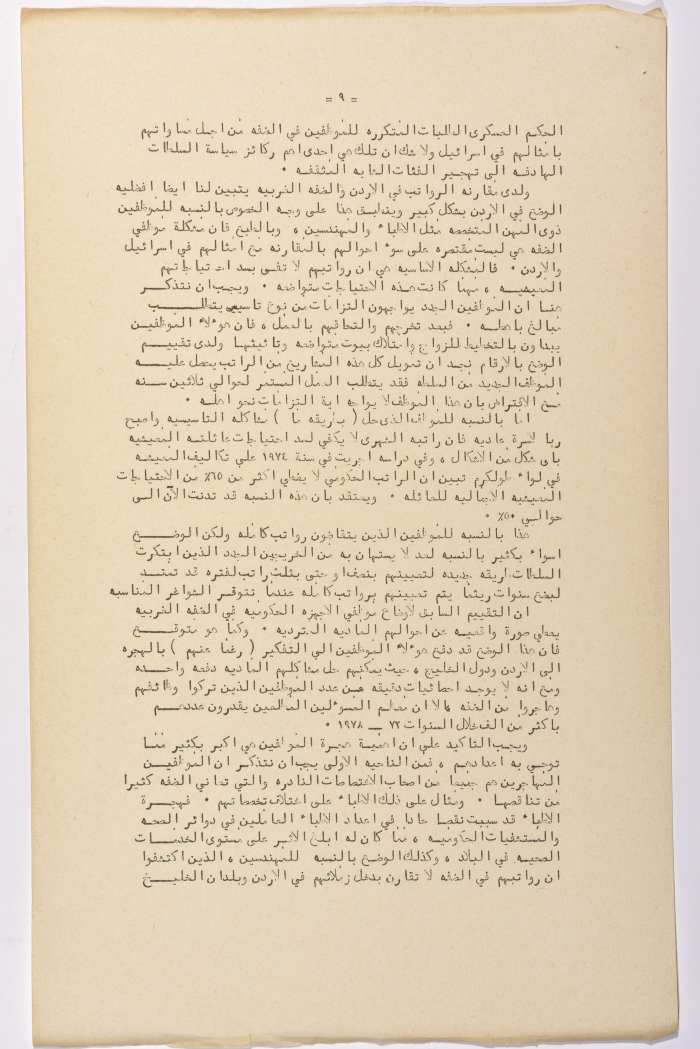 = ٩ =
الحكم العسكرى الطلبات المتكرره للموظفين في الضفه من اجل مساواتهم
بامثالهم في اسرائيل ولا شك ان تلك هي احدى اهم ركائز سياسة السلطات
الهادفه الى تهجير الفئات الشابه المثقفه ٠
ولدى مقارنه الرواتب في الاردن والضفه الغربيه يتبين لنا ايضا افضليه
الوضع في الاردن بشكل كبير وينطبق هذا على وجه الخصوص بالنسبه للموظفين
ذوى المهن المتخصصه مثل الاطباء والمهندسين ، وبالطبع فان مشكلة موظفي
الضفه هي ليست مقتصره على سوء احوالهم بالمقارنه مع امثالهم في اسرائيل
والاردن ٠ فالمشكله الاساسيه هي ان رواتبهم لا تفى بسد احتياجاتهم
المعيشيه ، مهما كانت هذه الاحتياجات متواضعه ٠ ويجب ان نتذكر
هنا ان الموظفين الجدد يواجهون التزامات من نوع تاسيسي يتطلب
مبالغ باهظه ٠ فبعد تخرجهم والتحاقهم بالعمل ، فان هوءلاء الموظفين
يبداون بالتخطيط للزواج وامتلاك بيوت متواضعه وتاثيثها ولدى تقييم
الوضع بالارقام نجد ان تمويل كل هذه المشاريع من الراتب يحصل عليه
الموظف الجديد من السلطه فقد يتطلب العمل المستمر لحوالي ثلاثين سنه
مع الافتراض بان هذا الموظف لا يواجه اية التزامات نحو اهله ٠
اما بالنسبه للموظف الذى حل ( بطريقه ما ) مشاكله التاسيسيه واصبح
ربا لاسرة عاديه فان راتبه الشهرى لا يكفي لسد احتياجات عائلته المعيشيه
باى شكل من الاشكال ، وفي دراسه اجريت في سنة ١٩٧٤ على تكاليف المعيشه
في لواء طولكرم تبين ان الراتب الحكومي لا يغطي اكثر من ٦٥٪ من الاحتياجات
المعيشيه الاجماليه للعائله ٠ ويعتقد بان هذه النسبه قد تدنت الآن الى
حوالي ٥٠٪ ٠
هذا بالنسبه للموظفين الذين يتقاضون رواتب كامله ولكن الوضع
اسواء بكثير بالنسبه لعدد لا يستهان به من الخريجين الجدد الذين ابتكرت
السلطات طريقه جديده لتعيينهم بنصف او حتى بثلث راتب لفتره قد تمتد
لبضع سنوات ريثما يتم تعيينهم برواتب كامله عندما تتوفر الشواغر المناسبه
ان التقييم السابق لاوضاع موظفي الاجهزه الحكوميه في الضفه الغربيه
يعطي صورة واقعيه عن احوالهم الماديه المترديه ٠ وكما هو متوقع
فان هذا الوضع قد دفع هوءلاء الموظفين الى التفكير ( رغما عنهم ) بالهجره
الى الاردن ودول الخليج ، حيث يمكنهم حل مشاكلهم الماديه دفعه واحده
ومع انه لا يوجد احصائيات دقيقه عن عدد الموظفين الذين تركوا وظائفهم
وهاجروا من الضفه ، الا ان معظم المسوءلين المطلعين يقدرون عددهم
باكثر من الف خلال السنوات ٧٢ — ١٩٧٨ ٠
ويجب التاكيد على ان اهمية هجرة الموظفين هي اكبر بكثير مما
توحي به اعدادهم ، فمن الناحيه الاولى يجب ان نتذكر ان الموظفين
المهاجرين هم جميعا من اصحاب الاختصاصات النادره والتي تعاني الضفه كثيرا
من تناقصها ٠ ومثال على ذلك الاطباء على اختلاف تخصصاتهم ٠ فهجرة
الاطباء قد سببت نقصا حادا في اعداد الاطباء العاملين في دوائر الصحه
والمستشفيات الحكوميه ، مما كان له ابلغ الاثر على مستوى الخدمات
الصحيه في البلاد ، وكذلك الوضع بالنسبه للمهندسين ، الذين اكتشفوا
ان رواتبهم في الضفه لا تقارن بدخل زملائهم في الاردن وبلدان الخليج